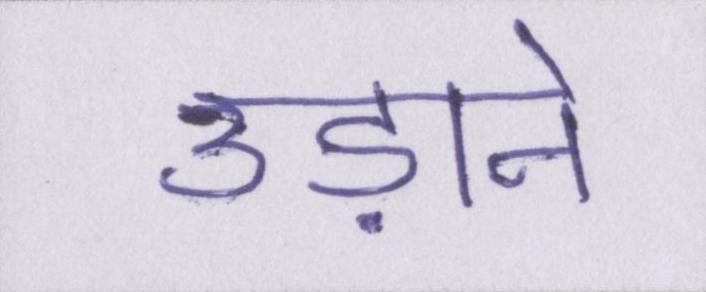 उड़ाने